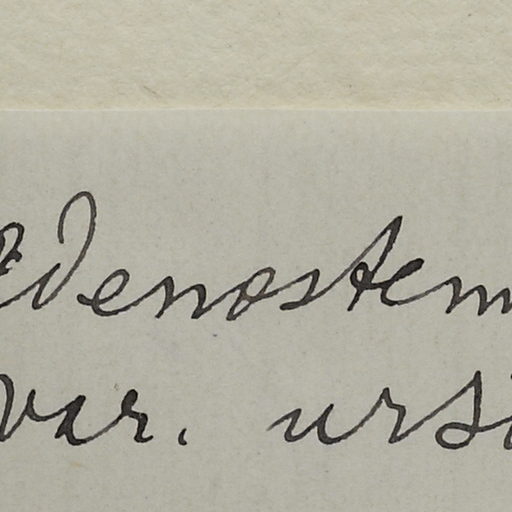 Adenostem
var. ursi